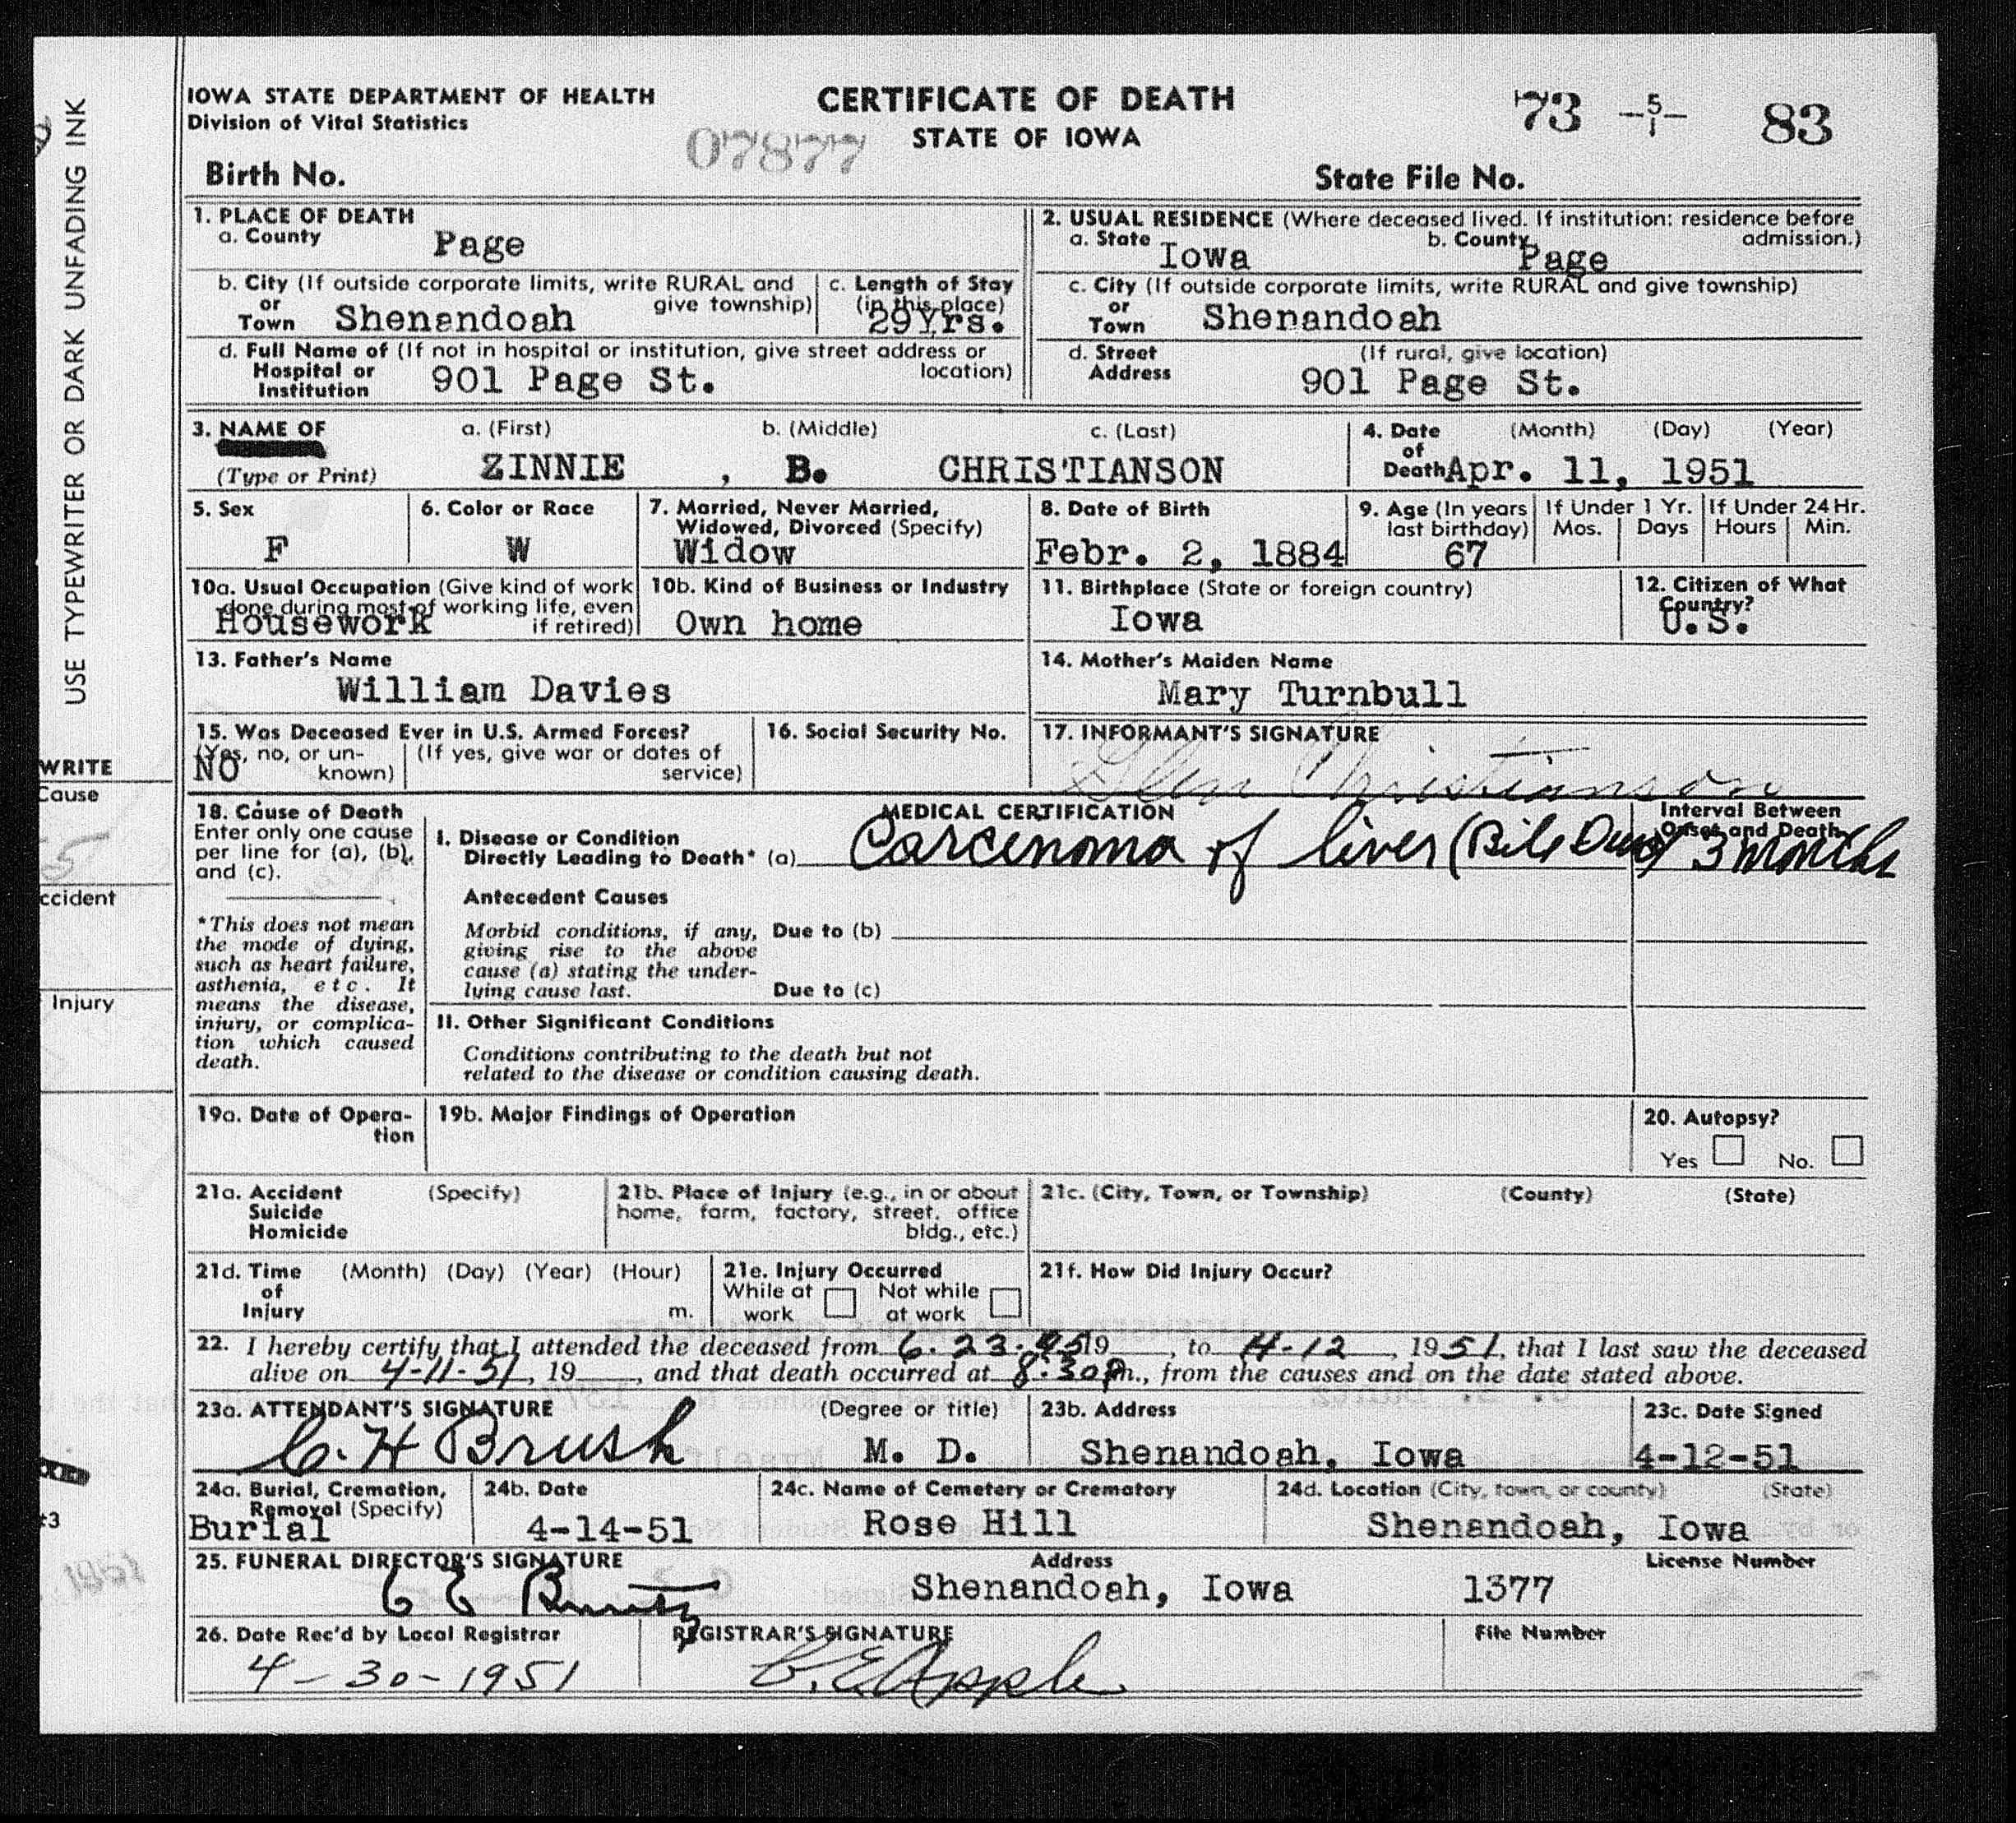 USE TYPEWRITER OR DARK UNFADING INK
WRITE
Cause
ccident
Injury
IOWA STATE DEPARTMENT OF HEALTH
Division of Vital Statistics
CERTIFICATE OF DEATH
STATE OF IOWA
07877
73 -5/1- 83
Birth No.
State File No.
1. PLACE OF DEATH
a. County Page
b. City (If outside corporate limits, write RURAL and give township)
or Town Shenandoah
c. Length of Stay (in this place) 29Yrs.
d. Full Name of (If not in hospital or institution, give street address or location)
Hospital or Institution 901 Page St.
2. USUAL RESIDENCE (Where deceased lived. If institution: residence before admission.)
a. State Iowa b. County Page
c. City (If outside corporate limits, write RURAL and give township)
or Town Shenandoah
d. Street Address (If rural, give location) 901 Page St.
3. NAME OF
(Type or Print)
a. (First) b. (Middle) c. (Last)
ZINNIE , B. CHRISTIANSON
4. Date of Death (Month) (Day) (Year)
Apr. 11, 1951
5. Sex F
6. Color or Race W
7. Married, Never Married, Widowed, Divorced (Specify) Widow
8. Date of Birth Febr. 2, 1884
9. Age (In years last birthday) 67
If Under 1 Yr. Mos. Days
If Under 24 Hr. Hours Min.
10a. Usual Occupation (Give kind of work done during most of working life, even if retired) Housework
10b. Kind of Business or Industry Own home
11. Birthplace (State or foreign country) Iowa
12. Citizen of What Country? U.S.
13. Father's Name William Davies
14. Mother's Maiden Name Mary Turnbull
15. Was Deceased Ever in U.S. Armed Forces?
(Yes, no, or unknown) NO
(If yes, give war or dates of service)
16. Social Security No.
17. INFORMANT'S SIGNATURE
Glen Christianson
18. Cause of Death
Enter only one cause
per line for (a), (b),
and (c).
*This does not mean
the mode of dying,
such as heart failure,
asthenia, etc. It
means the disease,
injury, or complica-
tion which caused
death.
MEDICAL CERTIFICATION
Interval Between Onset and Death
I. Disease or Condition
Directly Leading to Death* (a) Carcenoma of liver (Bile 3 months
Antecedent Causes
Morbid conditions, if any, Due to (b)
giving rise to the above
cause (a) stating the under-
lying cause last. Due to (c)
II. Other Significant Conditions
Conditions contributing to the death but not
related to the disease or condition causing death.
19a. Date of Opera-
tion
19b. Major Findings of Operation
20. Autopsy?
Yes No.
21a. Accident (Specify)
Suicide
Homicide
21b. Place of Injury (e.g., in or about
home, farm, factory, street, office
bldg., etc.)
21c. (City, Town, or Township) (County) (State)
21d. Time (Month) (Day) (Year) (Hour)
of
Injury m.
21e. Injury Occurred
While at work Not while at work
21f. How Did Injury Occur?
22. I hereby certify that I attended the deceased from 6.23.4519 , to 4-12 , 1951, that I last saw the deceased
alive on 4-11-51, 19 , and that death occurred at 8:30Pm., from the causes and on the date stated above.
23a. ATTENDANT'S SIGNATURE (Degree or title)
C. H Brush M. D.
23b. Address Shenandoah, Iowa
23c. Date Signed 4-12-51
24a. Burial, Cremation, Removal (Specify) Burial
24b. Date 4-14-51
24c. Name of Cemetery or Crematory Rose Hill
24d. Location (City, town, or county) (State) Shenandoah, Iowa
25. FUNERAL DIRECTOR'S SIGNATURE
Address Shenandoah, Iowa
License Number 1377
26. Date Rec'd by Local Registrar 4-30-1951
REGISTRAR'S SIGNATURE C. E. Apple
File Number